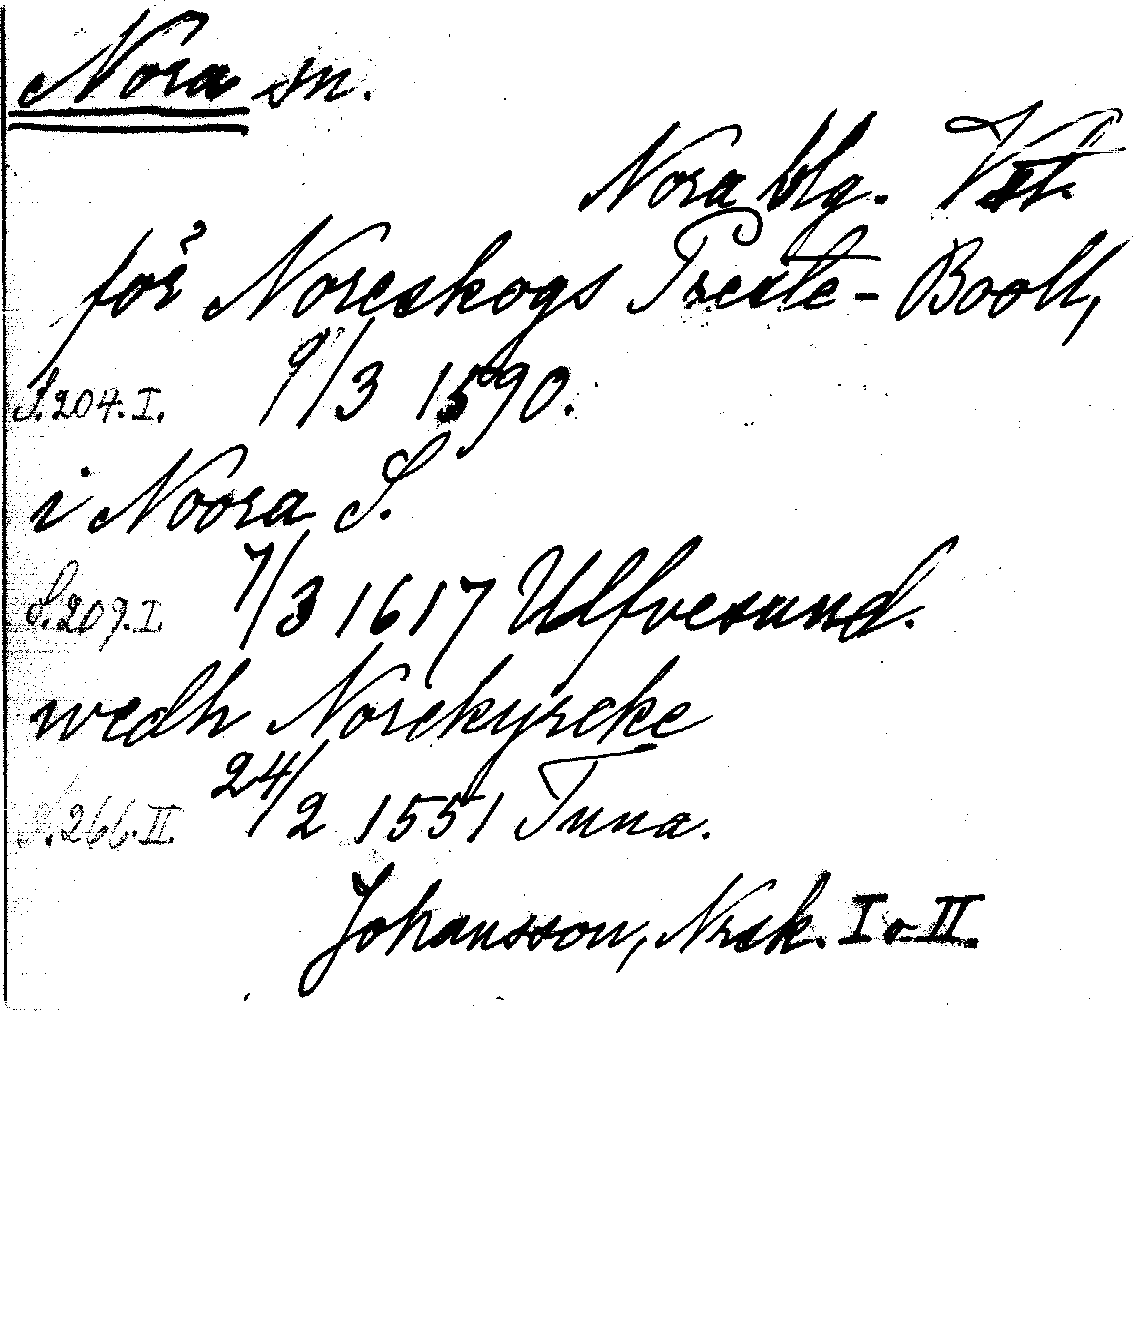 Nora sn.
Nora blg. Vstl.
för Noreskogs Preste-Booll,
S.204.I. 9/3 1590.
i Noora S.
S.209.I. 7/3 1617 Ulfvesund.
wedh Norekyrcke
S.266.II. 24/2 1551 Tuna.
Johansson, Nrsk. I o II.